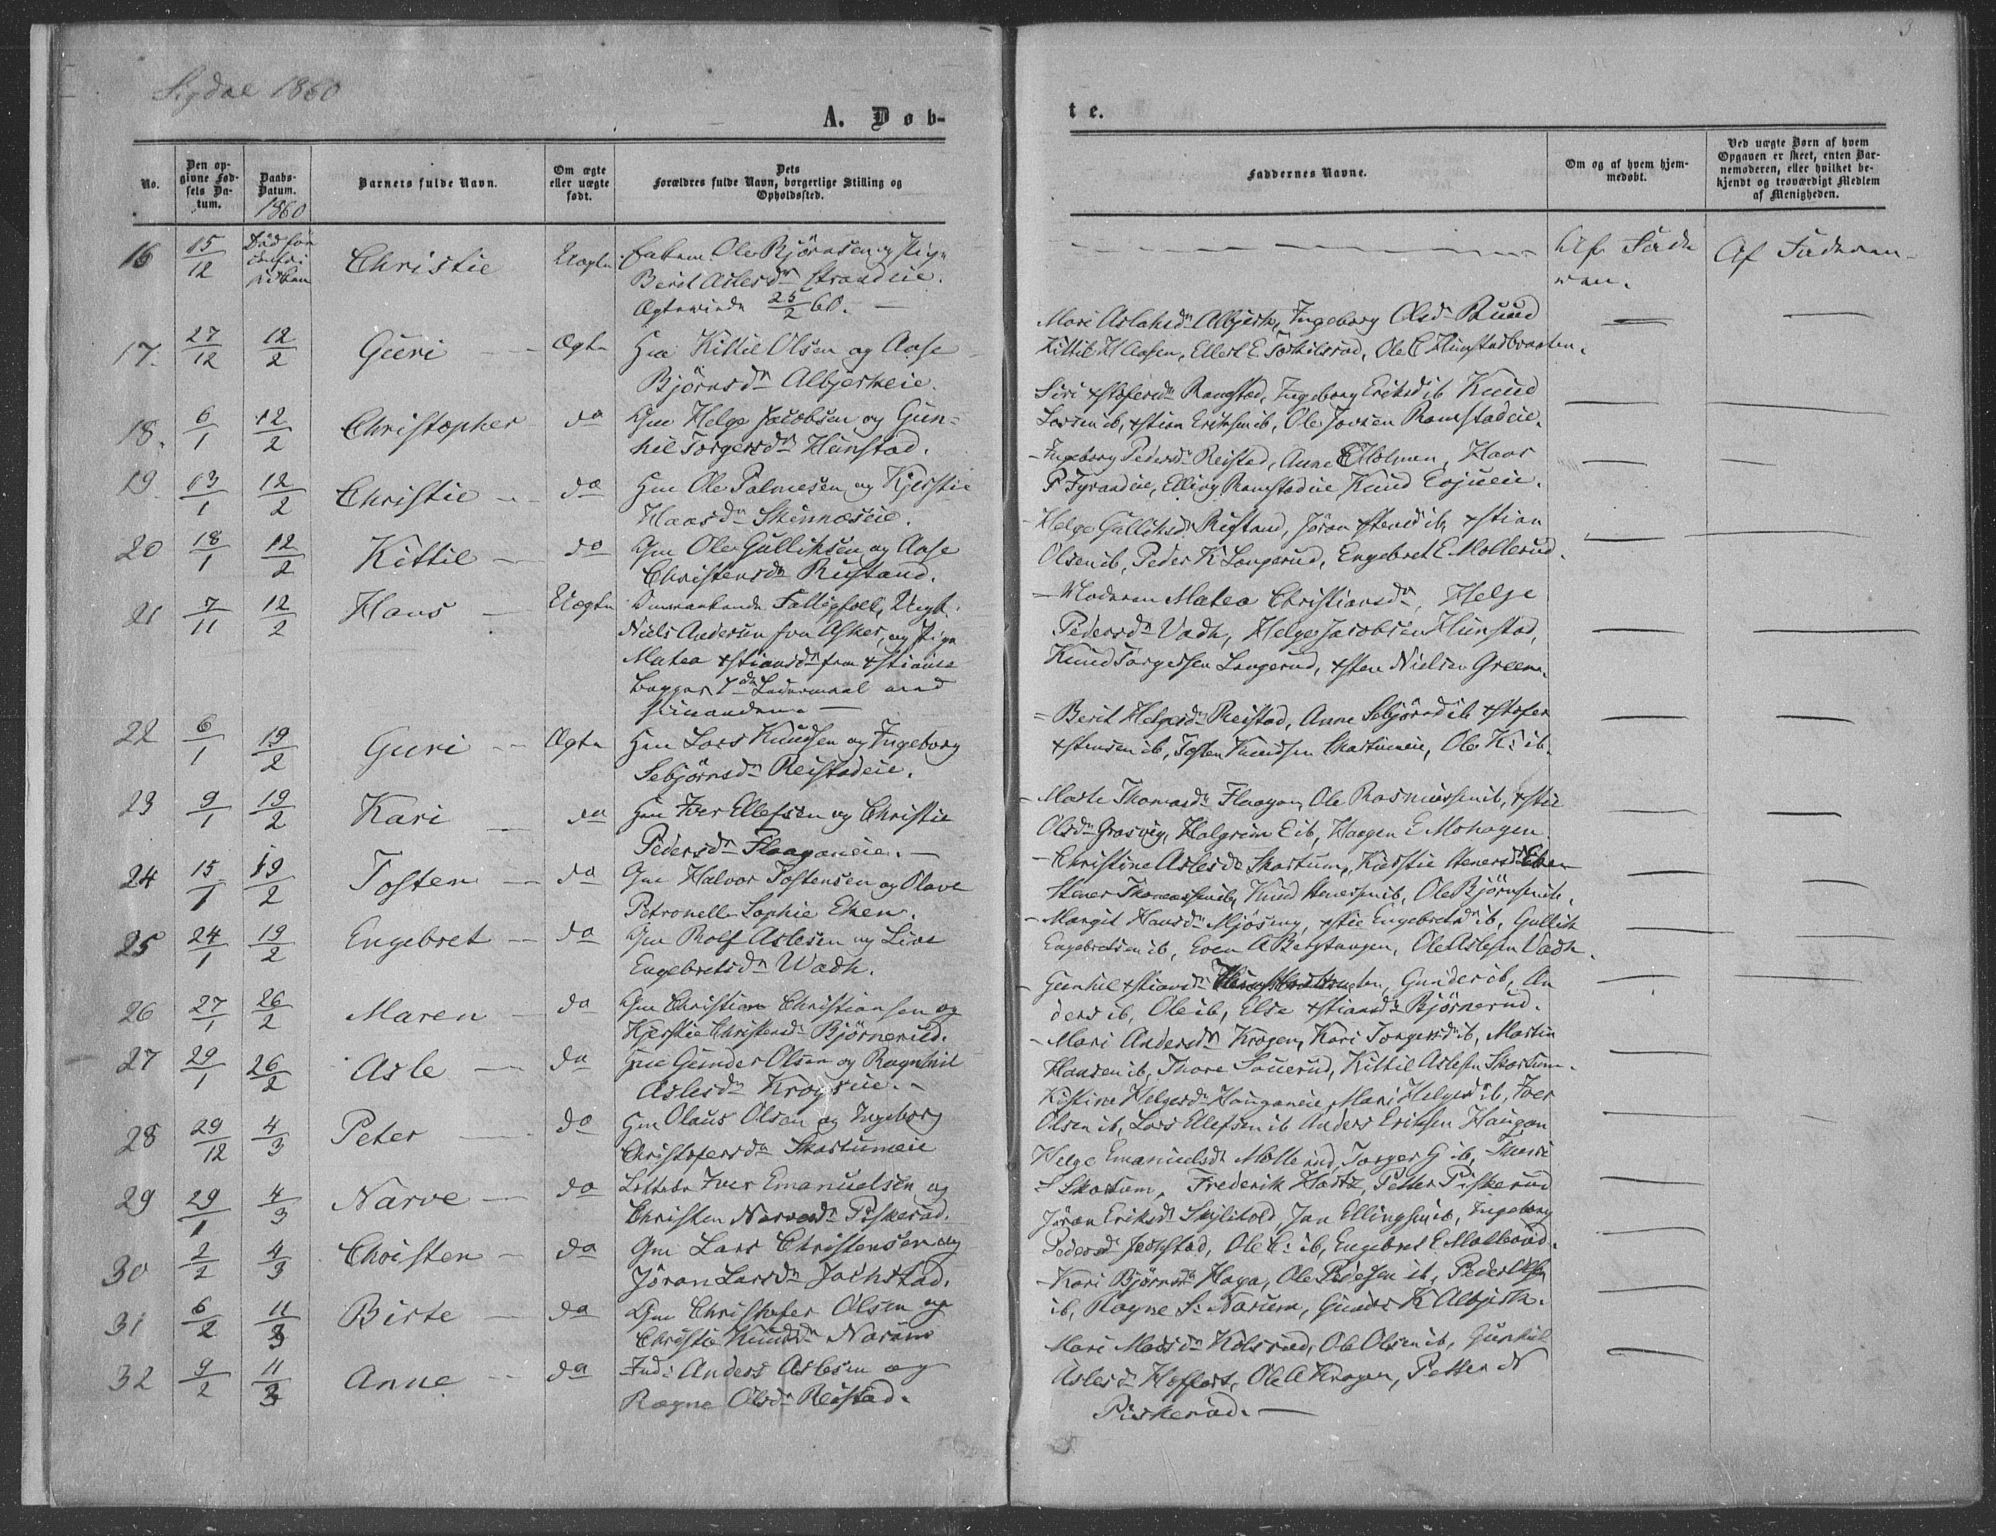 3
Sigdal 1860
A. Døb-
te.
No.
Den op-
givne Fød-
sels Da-
tum.
Daabs-
Datum.
1860
Barnets fulde Navn.
Om ægte
eller uægte
født.
Dets
Forældres fulde Navn, borgerlige Stilling og
Opholdssted.
Faddernes Navne.
Om og af hvem hjem-
medøbt.
Ved uægte Børn af hvem
Opgaven er skeet, enten Bar-
nemoderen, eller hvilket be-
kjendt og troværdigt Medlem
af Menigheden.
16 15/12 Død før Christie Uægte Ole Bjørnsen og Pige
Berit Aslesdr Strandeie.
25/2 60. —
Af Fade
ren.
Af Faderen
17. 27/12 12/2 Guri — Ægte Hm Kittil Olsen og Aase
Bjørnsdr Albjerkeie.
Mari Aslaksdr Albjerk, Ingeborg Olsdr Ruud
Kittil H Aasen, Ellert E Torkilsrud, Ole C Hunstadbraaten.
18. 6/1 12/2 Christopher do Gm Helge Jacobsen og Gun-
hil Torgersdr Hunstad.
Siri Xstofersdr Ramstad, Ingeborg Eriksd ib Knud
Larsen ib, Xstian Eriksen ib, Ole Ramstadeie.
19. 13/1 12/2 Christie — do Hm Ole Palmesen og Kjerstie
Haagensdr Skinneseie.
Ingeborg Pedersdr Reistad, Anne Holmen, Hans
Elling Ramstadeie Knud
20 18/1 12/2 Kittil — do Gm Ole Gulliksen og Aase
Christensdr Rustand.
Helge Gulliksdr Rustand, Jøran ib, Xstian
Olsen ib, Peder K Langerud, Engebret E Mollerud.
21 7/11 12/2 Hans — Uægte Omvankende Fattigfolk, Ungk.
Niels Andersen fra Asker, og Pige
Matea Xstiansdr fra
—
Moderen Matea Christiansdr, Helge
Pedersdr Vadh, Helge Jacobsen Hunstad,
Knud Torgersen Langerud, Xsten Nielsen Green.
22 6/1 19/2 Guri — Ægte Hm Lars Knudsen og Ingeborg
Sebjørnsdr Reistadeie.
Berit Helgesdr Reistad, Anne Sebjørnsd ib Xstofer
Xstensen ib, Tosten Knudsen Skartumeie, Ole K: ib.
23 9/1 19/2 Kari — do Hm Iver Ellefsen og Christie
Pedersdr Flaaganeie. —
Marte Thomasdr Flaagan, Ole Rasmussen ib, Xstie
Olsdr Grasvig, Halgrim E ib, Haagen E Mohagen.
24 15/1 19/2 Tosten — do Gm Halvor Tostensen og Olave
Petronelle Sophie Eken.
Christine Aslesdr Skartum, Kirstie Stenersdr Eken
Stener Thomassen ib, Knud Stenersen ib, Ole Bjørnsen ib.
25 24/1 19/2 Engebret — do Gm Rolf Aslesen og Live
Engebretsdr Wadh.
Margit Hansdr Mjøseng, Xstie Engebretsd ib, Gullik
Engebretsen ib, Even A Bergstangen, Ole Aslesen Vadh.
26 27/1 26/2 Maren — do Gm Christian Christiansen og
Kjerstie Christensdr Bjørnerud.
Gunhil Xstiansdr Gunder ib, An
ders ib, Ole ib, Else Xstiansdr Bjørnerud.
27 29/1 26/2 Asle — do Hm Gunder Olsen og Ragnhil
Aslesdr Krogseie.
Mari Andersdr Krogen, Kari Torgersd ib, Martin
Hansen ib, Thore Souerud, Kittil Aslesen Skartum.
28 29/12 4/3 Peter — do Hm Olaus Olsen og Ingeborg
Christofersdr Skartumeie
Kistine Helgesdr Hauganeie, Mari Helgesd ib, Iver
Olsen ib, Lars Ellefsen ib Anders Eriksen Haugan
29 29/1 4/3 Narve — do Iver Emanuelsen og
Christen Narvesdr Piskerud.
Helge Emanuelsdr Mollerud, Torger G ib,
Skartum, Frederik Hartz, Petter Piskerud
30 2/2 4/3 Christen — do Gm Lars Christensen og
Jøran Larsdr Jochstad.
Jøran Eriksdr Jan Ellingsen ib, Ingeborg
Pedersdr Jochstad, Ole C: ib, Engebret E Mollerud.
31 6/2 11/3 Birte — do Gm Christofer Olsen og
Christie Knudsdr Narum
Kari Bjørnsdr Haga, Ole ib, Peder Olsen
ib, Ragne S: Narum, Gunder K Albjerk.
32 9/2 11/3 Anne — do Ind: Anders Aslesen og
Ragne Olsdr Reistad.
Mari Madsdr Kolsrud, Ole Olsen ib, Gunhil
Aslesdr Hoffart, Ole A Krogen, Petter N
Piskerud. —